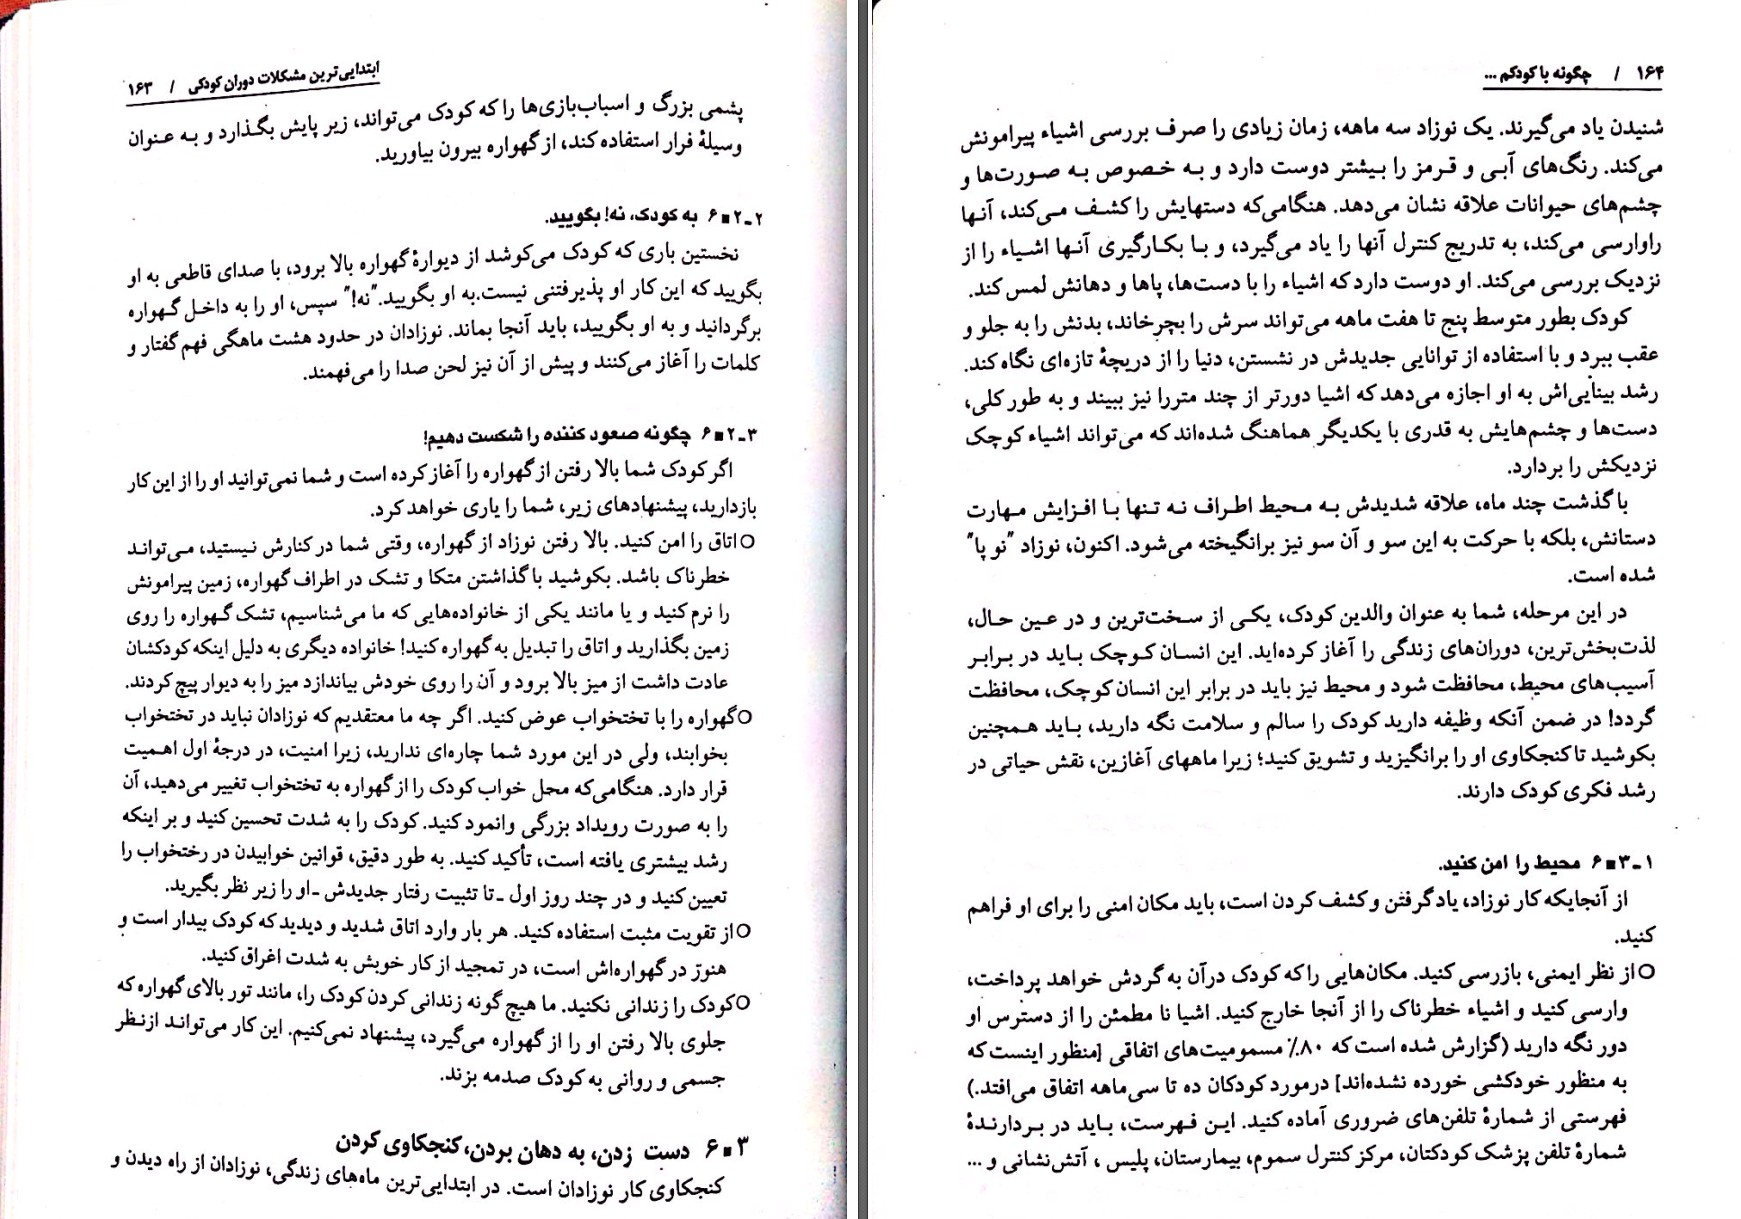 ابتدایی‌ترین مشکلات دوران کودکی / ۱۶۳
پشمی بزرگ و اسباب‌بازی‌ها را که کودک می‌تواند، زیر پایش بگذارد و به عنوان
وسیلهٔ فرار استفاده کند، از گهواره بیرون بیاورید.
۶■۲-۲ به کودک، نه! بگویید.
نخستین باری که کودک می‌کوشد از دیوارهٔ گهواره بالا برود، با صدای قاطعی به او
بگویید که این کار او پذیرفتنی نیست.به او بگویید.”نه!” سپس، او را به داخل گهواره
برگردانید و به او بگویید، باید آنجا بماند. نوزادان در حدود هشت ماهگی فهم گفتار و
کلمات را آغاز می‌کنند و پیش از آن نیز لحن صدا را می‌فهمند.
۶■۲-۳ چگونه صعود کننده را شکست دهیم!
اگر کودک شما بالا رفتن از گهواره را آغاز کرده است و شما نمی‌توانید او را از این کار
بازدارید، پیشنهادهای زیر، شما را یاری خواهد کرد.
○اتاق را امن کنید. بالا رفتن نوزاد از گهواره، وقتی شما در کنارش نیستید، می‌تواند
خطرناک باشد. بکوشید با گذاشتن متکا و تشک در اطراف گهواره، زمین پیرامونش
را نرم کنید و یا مانند یکی از خانواده‌هایی که ما می‌شناسیم، تشک گهواره را روی
زمین بگذارید و اتاق را تبدیل به گهواره کنید! خانواده دیگری به دلیل اینکه کودکشان
عادت داشت از میز بالا برود و آن را روی خودش بیاندازد میز را به دیوار پیچ کردند.
○گهواره را با تختخواب عوض کنید. اگر چه ما معتقدیم که نوزادان نباید در تختخواب
بخوابند، ولی در این مورد شما چاره‌ای ندارید، زیرا امنیت، در درجهٔ اول اهمیت
قرار دارد. هنگامی‌که محل خواب کودک را از گهواره به تختخواب تغییر می‌دهید، آن
را به صورت رویداد بزرگی وانمود کنید. کودک را به شدت تحسین کنید و بر اینکه
رشد بیشتری یافته است، تأکید کنید. به طور دقیق، قوانین خوابیدن در رختخواب را
تعیین کنید و در چند روز اول ـ تا تثبیت رفتار جدیدش ـ او را زیر نظر بگیرید.
○از تقویت مثبت استفاده کنید. هر بار وارد اتاق شدید و دیدید که کودک بیدار است و
هنوز در گهواره‌اش است، در تمجید از کار خوبش به شدت اغراق کنید.
○کودک را زندانی نکنید. ما هیچ گونه زندانی کردن کودک را، مانند تور بالای گهواره که
جلوی بالا رفتن او را از گهواره می‌گیرد، پیشنهاد نمی‌کنیم. این کار می‌تواند ازنظر
جسمی و روانی به کودک صدمه بزند.
۶■۳ دست زدن، به دهان بردن، کنجکاوی کردن
کنجکاوی کار نوزادان است. در ابتدایی‌ترین ماه‌های زندگی، نوزادان از راه دیدن و
۱۶۴ / چگونه با کودکم ...
شنیدن یاد می‌گیرند. یک نوزاد سه ماهه، زمان زیادی را صرف بررسی اشیاء پیرامونش
می‌کند. رنگ‌های آبی و قرمز را بیشتر دوست دارد و به خصوص به صورت‌ها و
چشم‌های حیوانات علاقه نشان می‌دهد. هنگامی‌که دستهایش را کشف می‌کند، آنها
راوارسی می‌کند، به تدریج کنترل آنها را یاد می‌گیرد، و با بکارگیری آنها اشیاء را از
نزدیک بررسی می‌کند. او دوست دارد که اشیاء را با دست‌ها، پاها و دهانش لمس کند.
کودک بطور متوسط پنج تا هفت ماهه می‌تواند سرش را بچرخاند، بدنش را به جلو و
عقب ببرد و با استفاده از توانایی جدیدش در نشستن، دنیا را از دریچهٔ تازه‌ای نگاه کند.
رشد بینایی‌اش به او اجازه می‌دهد که اشیا دورتر از چند متررا نیز ببیند و به طور کلی،
دست‌ها و چشم‌هایش به قدری با یکدیگر هماهنگ شده‌اند که می‌تواند اشیاء کوچک
نزدیکش را بردارد.
با گذشت چند ماه، علاقه شدیدش به محیط اطراف نه تنها با افزایش مهارت
دستانش، بلکه با حرکت به این سو و آن سو نیز برانگیخته می‌شود. اکنون، نوزاد ”نو پا”
شده است.
در این مرحله، شما به عنوان والدین کودک، یکی از سخت‌ترین و در عین حال،
لذت‌بخش‌ترین، دوران‌های زندگی را آغاز کرده‌اید. این انسان کوچک باید در برابر
آسیب‌های محیط، محافظت شود و محیط نیز باید در برابر این انسان کوچک، محافظت
گردد! در ضمن آنکه وظیفه دارید کودک را سالم و سلامت نگه دارید، باید همچنین
بکوشید تا کنجکاوی او را برانگیزید و تشویق کنید؛ زیرا ماههای آغازین، نقش حیاتی در
رشد فکری کودک دارند.
۶■۳-۱ محیط را امن کنید.
از آنجایکه کار نوزاد، یاد گرفتن و کشف کردن است، باید مکان امنی را برای او فراهم
کنید.
○از نظر ایمنی، بازرسی کنید. مکان‌هایی را که کودک درآن به گردش خواهد پرداخت،
وارسی کنید و اشیاء خطرناک را از آنجا خارج کنید. اشیا نا مطمئن را از دسترس او
دور نگه دارید (گزارش شده است که ۸۰٪ مسمومیت‌های اتفاقی [منظور اینست که
به منظور خودکشی خورده نشده‌اند] درمورد کودکان ده تا سی‌ماهه اتفاق می‌افتد.)
فهرستی از شمارهٔ تلفن‌های ضروری آماده کنید. این فهرست، باید در بردارندهٔ
شمارهٔ تلفن پزشک کودکتان، مرکز کنترل سموم، بیمارستان، پلیس ، آتش‌نشانی و ...